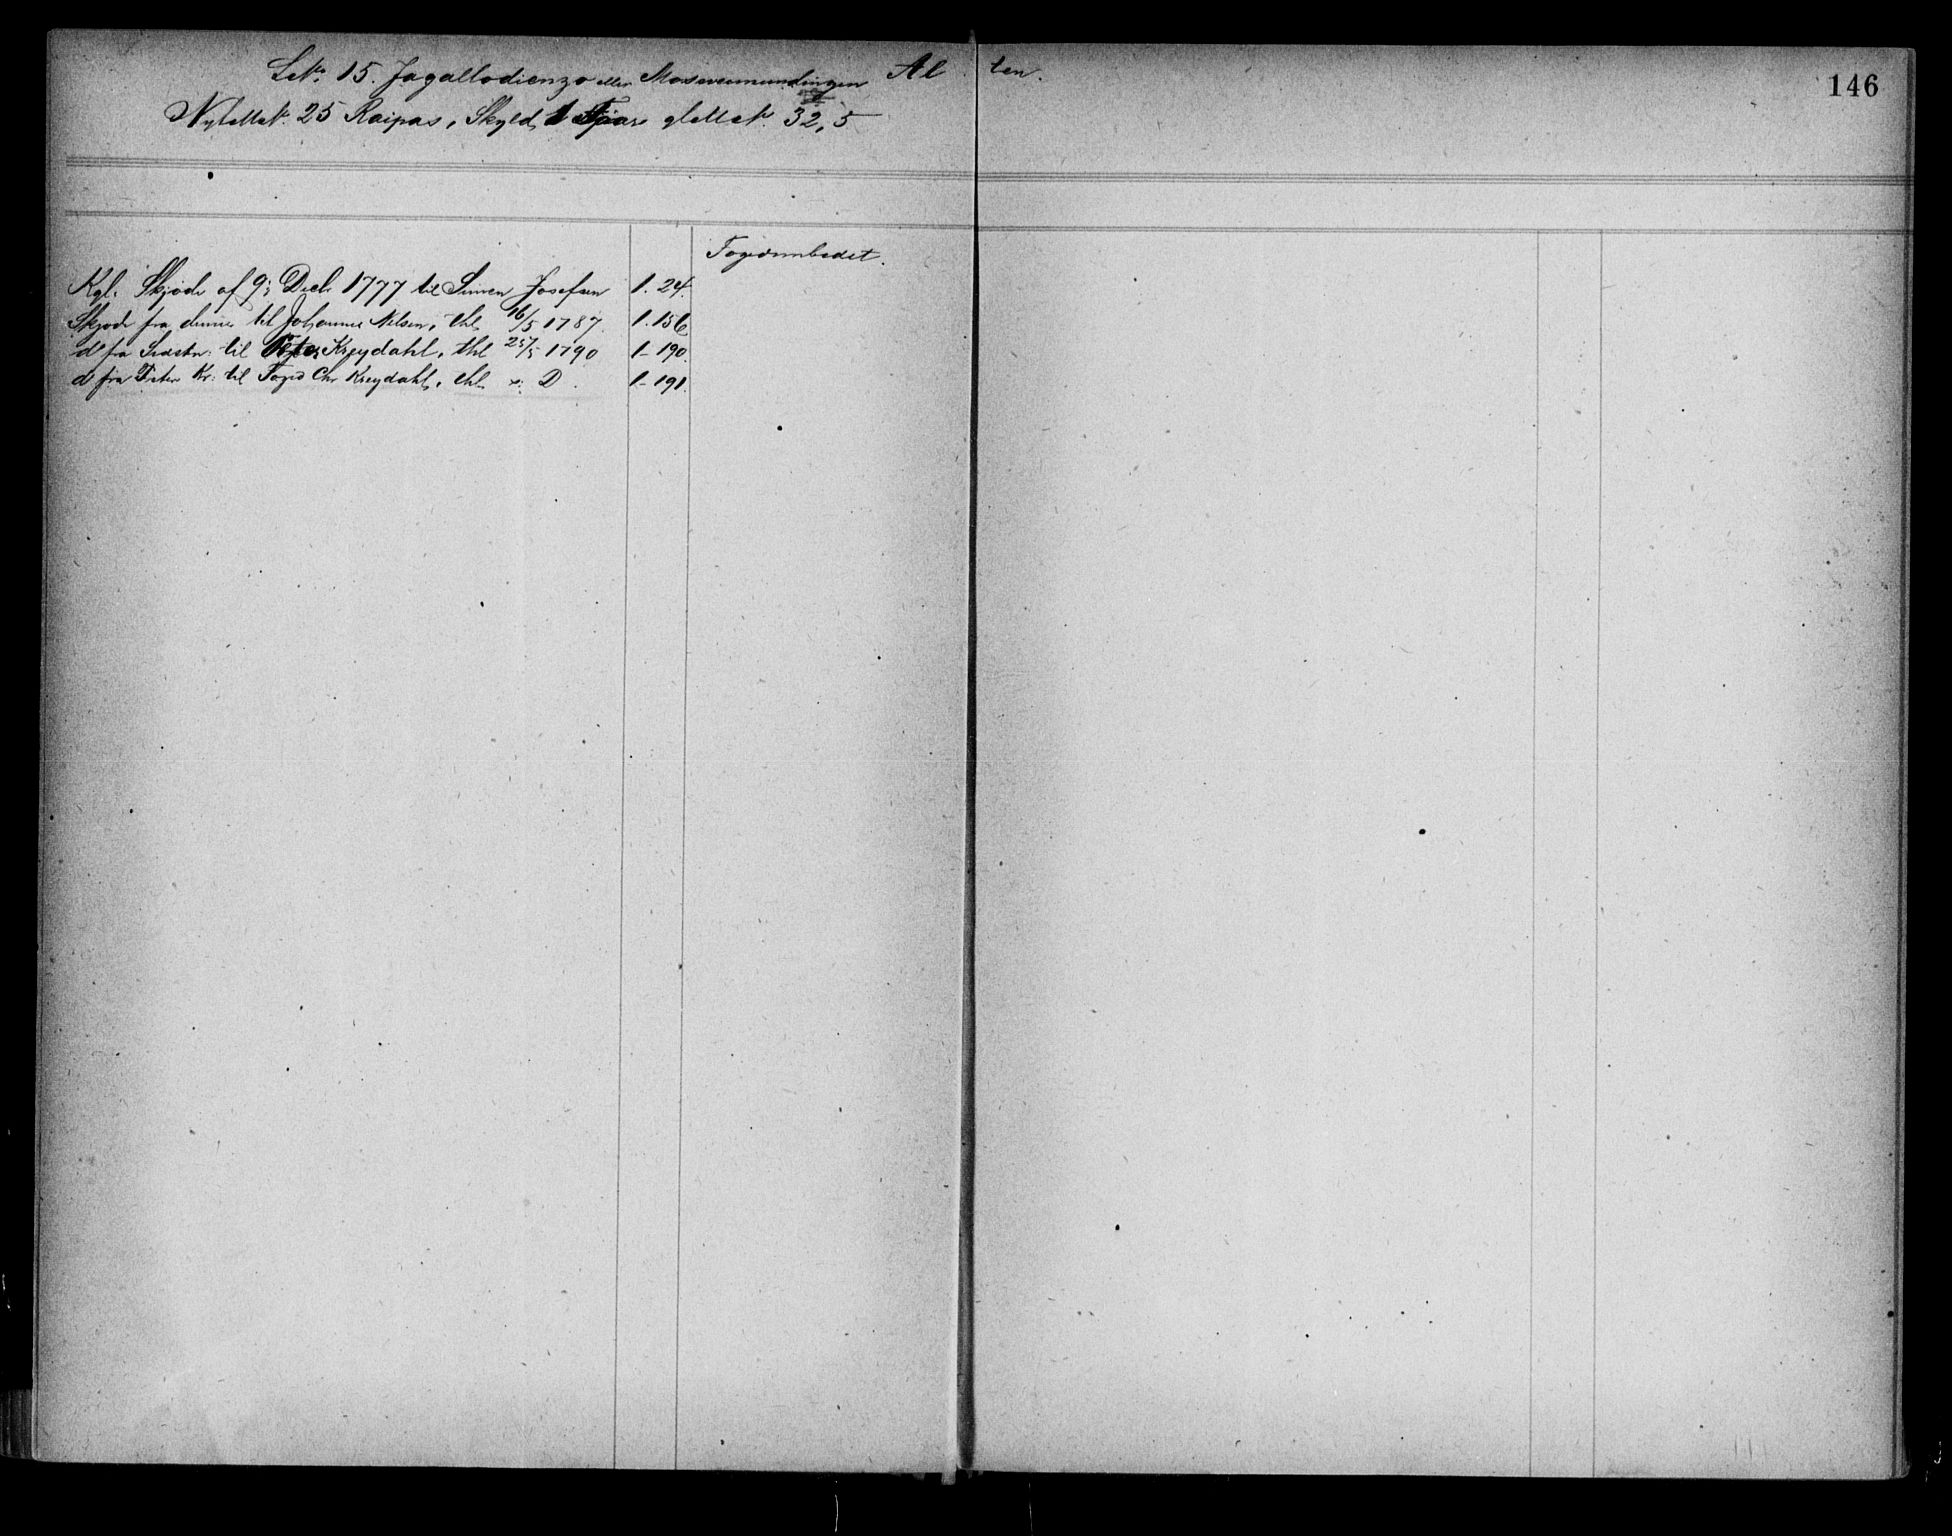 Al ten.
146
Let. 15. Jagallodienzo eller Moseverumundingen
Nyettet. 25 Raipas, Skyld, 1 glettet. 32,5
Fogedembedet.
Kgl. Skjøde af 9: Decb 1777 til Simen Josefsen 1. 24.
Skjøde fra denne til Johannes Nilsen, thl 16/5 1787. 1. 156
d fra Sidstn: til Peter Kreydahl, thl 25/5 1790 1 - 190.
d fra Peter Kr: til Foged Chr Kreydahl, thl s: D. 1 - 191.